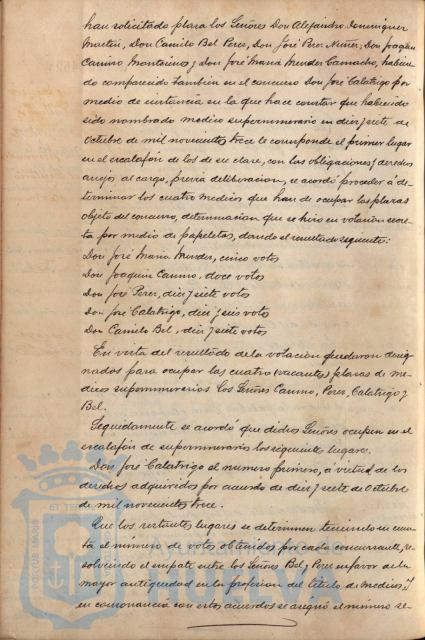 han solicitado plaza los Señores Don Alejandro Dominguez
Martín, Don Camilo Bel Perez, Don José Perez Nuñez, Don Joaquín
Camino Montaireaux y Don José María Mendez Camacho, habien-
do comparecido tambien en el concurso Don José Calatrigo por
medio de instancia en la que hace constar que habiendo
sido nombrado medico supernumerario en diez y siete de
Octubre de mil novecientos trece le corresponde el primer lugar
en el escalafón de los de su clase, con las obligaciones y derechos
anejo al cargo, previa deliberacion, se acordó proceder á de-
terminar los cuatro medicos que han de ocupar las plazas
objeto del concurso, determinacion que se hizo en votacion secre-
ta por medio de papeletas, dando el resultado siguiente:
Don José María Mendez, cinco votos
Don Joaquin Camino, doce votos
Don José Perez, diez y siete votos
Don José Calatrigo, diez y seis votos
Don Camilo Bel, diez y siete votos
En vista del resultado de la votación quedaron desig-
nados para ocupar las cuatro (vacantes) plazas de me-
dicos supernumerarios los Señores Camino, Perez, Calatrigo y
Bel.
Seguidamente se acordó que dichos Señores ocupen en el
escalafón de supernumerarios los siguiente lugares.
Don José Calatrigo el numero primero, á virtud de los
derechos adquiridos por acuerdo de diez y siete de Octubre
de mil novecientos trece.
Que los restantes lugares se determinen teniendo en cuen-
ta el número de votos obtenidos por cada concursante, re-
solviendo el empate entre los Señores Bel y Perez en favor de la
mayor antiguedad en la profesion del titulo de medicos. Y
en consonancia con estos acuerdos se asignó el número se-
PORTUS MARIS
Ayuntamiento de
HUELVA